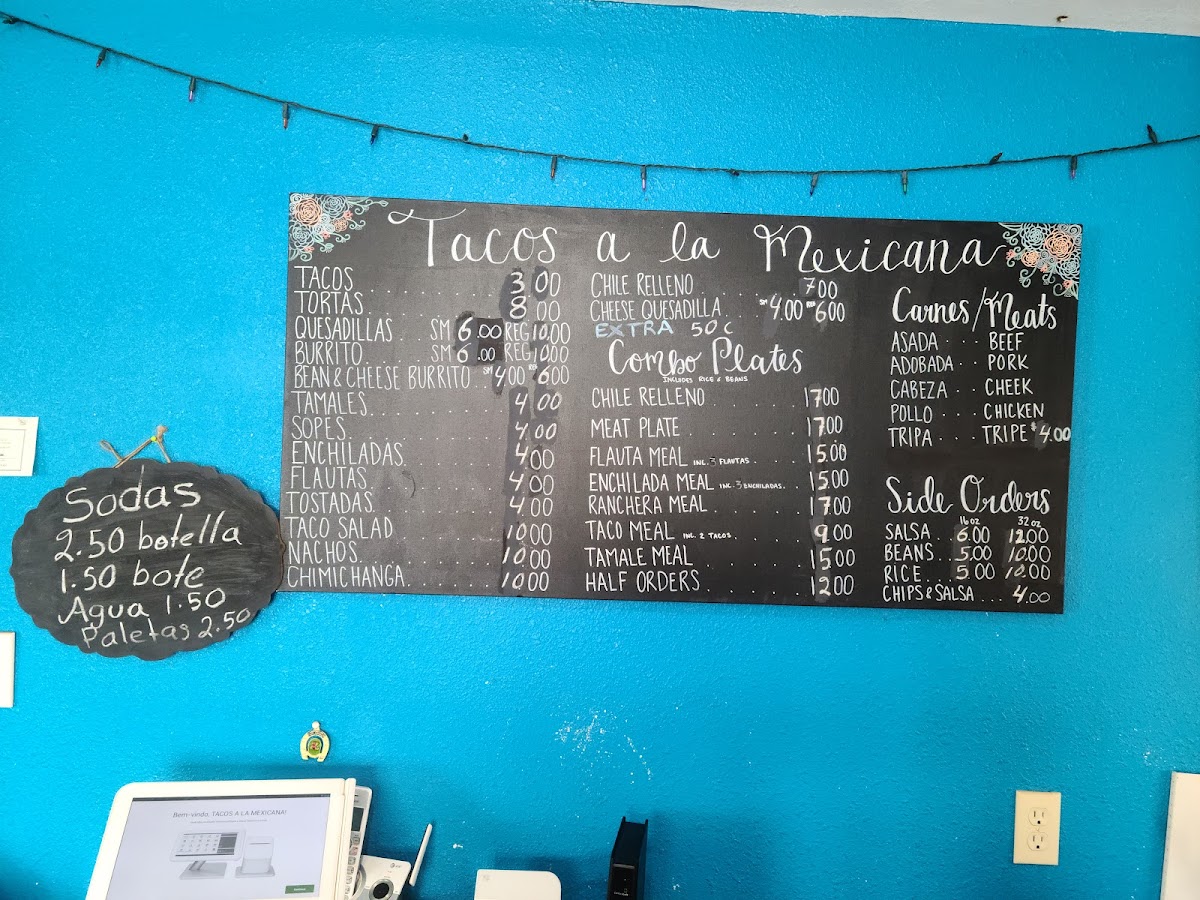 Tacos a la Mexicana
TACOS . . . . . . . 3.00
TORTAS . . . . . . . 8.00
QUESADILLAS . SM 6.00 REG 10.00
BURRITO . . . . SM 6.00 REG 10.00
BEAN & CHEESE BURRITO . . SM 4.00 REG 6.00
TAMALES . . . . . . . 4.00
SOPES . . . . . . . 4.00
ENCHILADAS . . . . . . . 4.00
FLAUTAS . . . . . . . 4.00
TOSTADAS . . . . . . . 4.00
TACO SALAD . . . . . . . 10.00
NACHOS . . . . . . . 10.00
CHIMICHANGA . . . . . . . 10.00
CHILE RELLENO . . . . . 7.00
CHEESE QUESADILLA . . SM 4.00 REG 6.00
EXTRA 50¢
Combo Plates
INCLUDES RICE & BEANS
CHILE RELLENO . . . . . 17.00
MEAT PLATE . . . . . 17.00
FLAUTA MEAL INC. 3 FLAUTAS . . . . 15.00
ENCHILADA MEAL INC. 3 ENCHILADAS . . 15.00
RANCHERA MEAL . . . . . 17.00
TACO MEAL INC. 2 TACOS . . . . . 9.00
TAMALE MEAL . . . . . 15.00
HALF ORDERS . . . . . 12.00
Carnes/Meats
ASADA . . . BEEF
ADOBADA . . PORK
CABEZA . . CHEEK
POLLO . . . CHICKEN
TRIPA . . . TRIPE $4.00
Side Orders
16oz 32oz
SALSA . . 6.00 12.00
BEANS . . 5.00 10.00
RICE . . . 5.00 10.00
CHIPS & SALSA . . . 4.00
Sodas
2.50 botella
1.50 bote
Agua 1.50
Paletas 2.50
Bem-vindo, TACOS A LA MEXICANA!